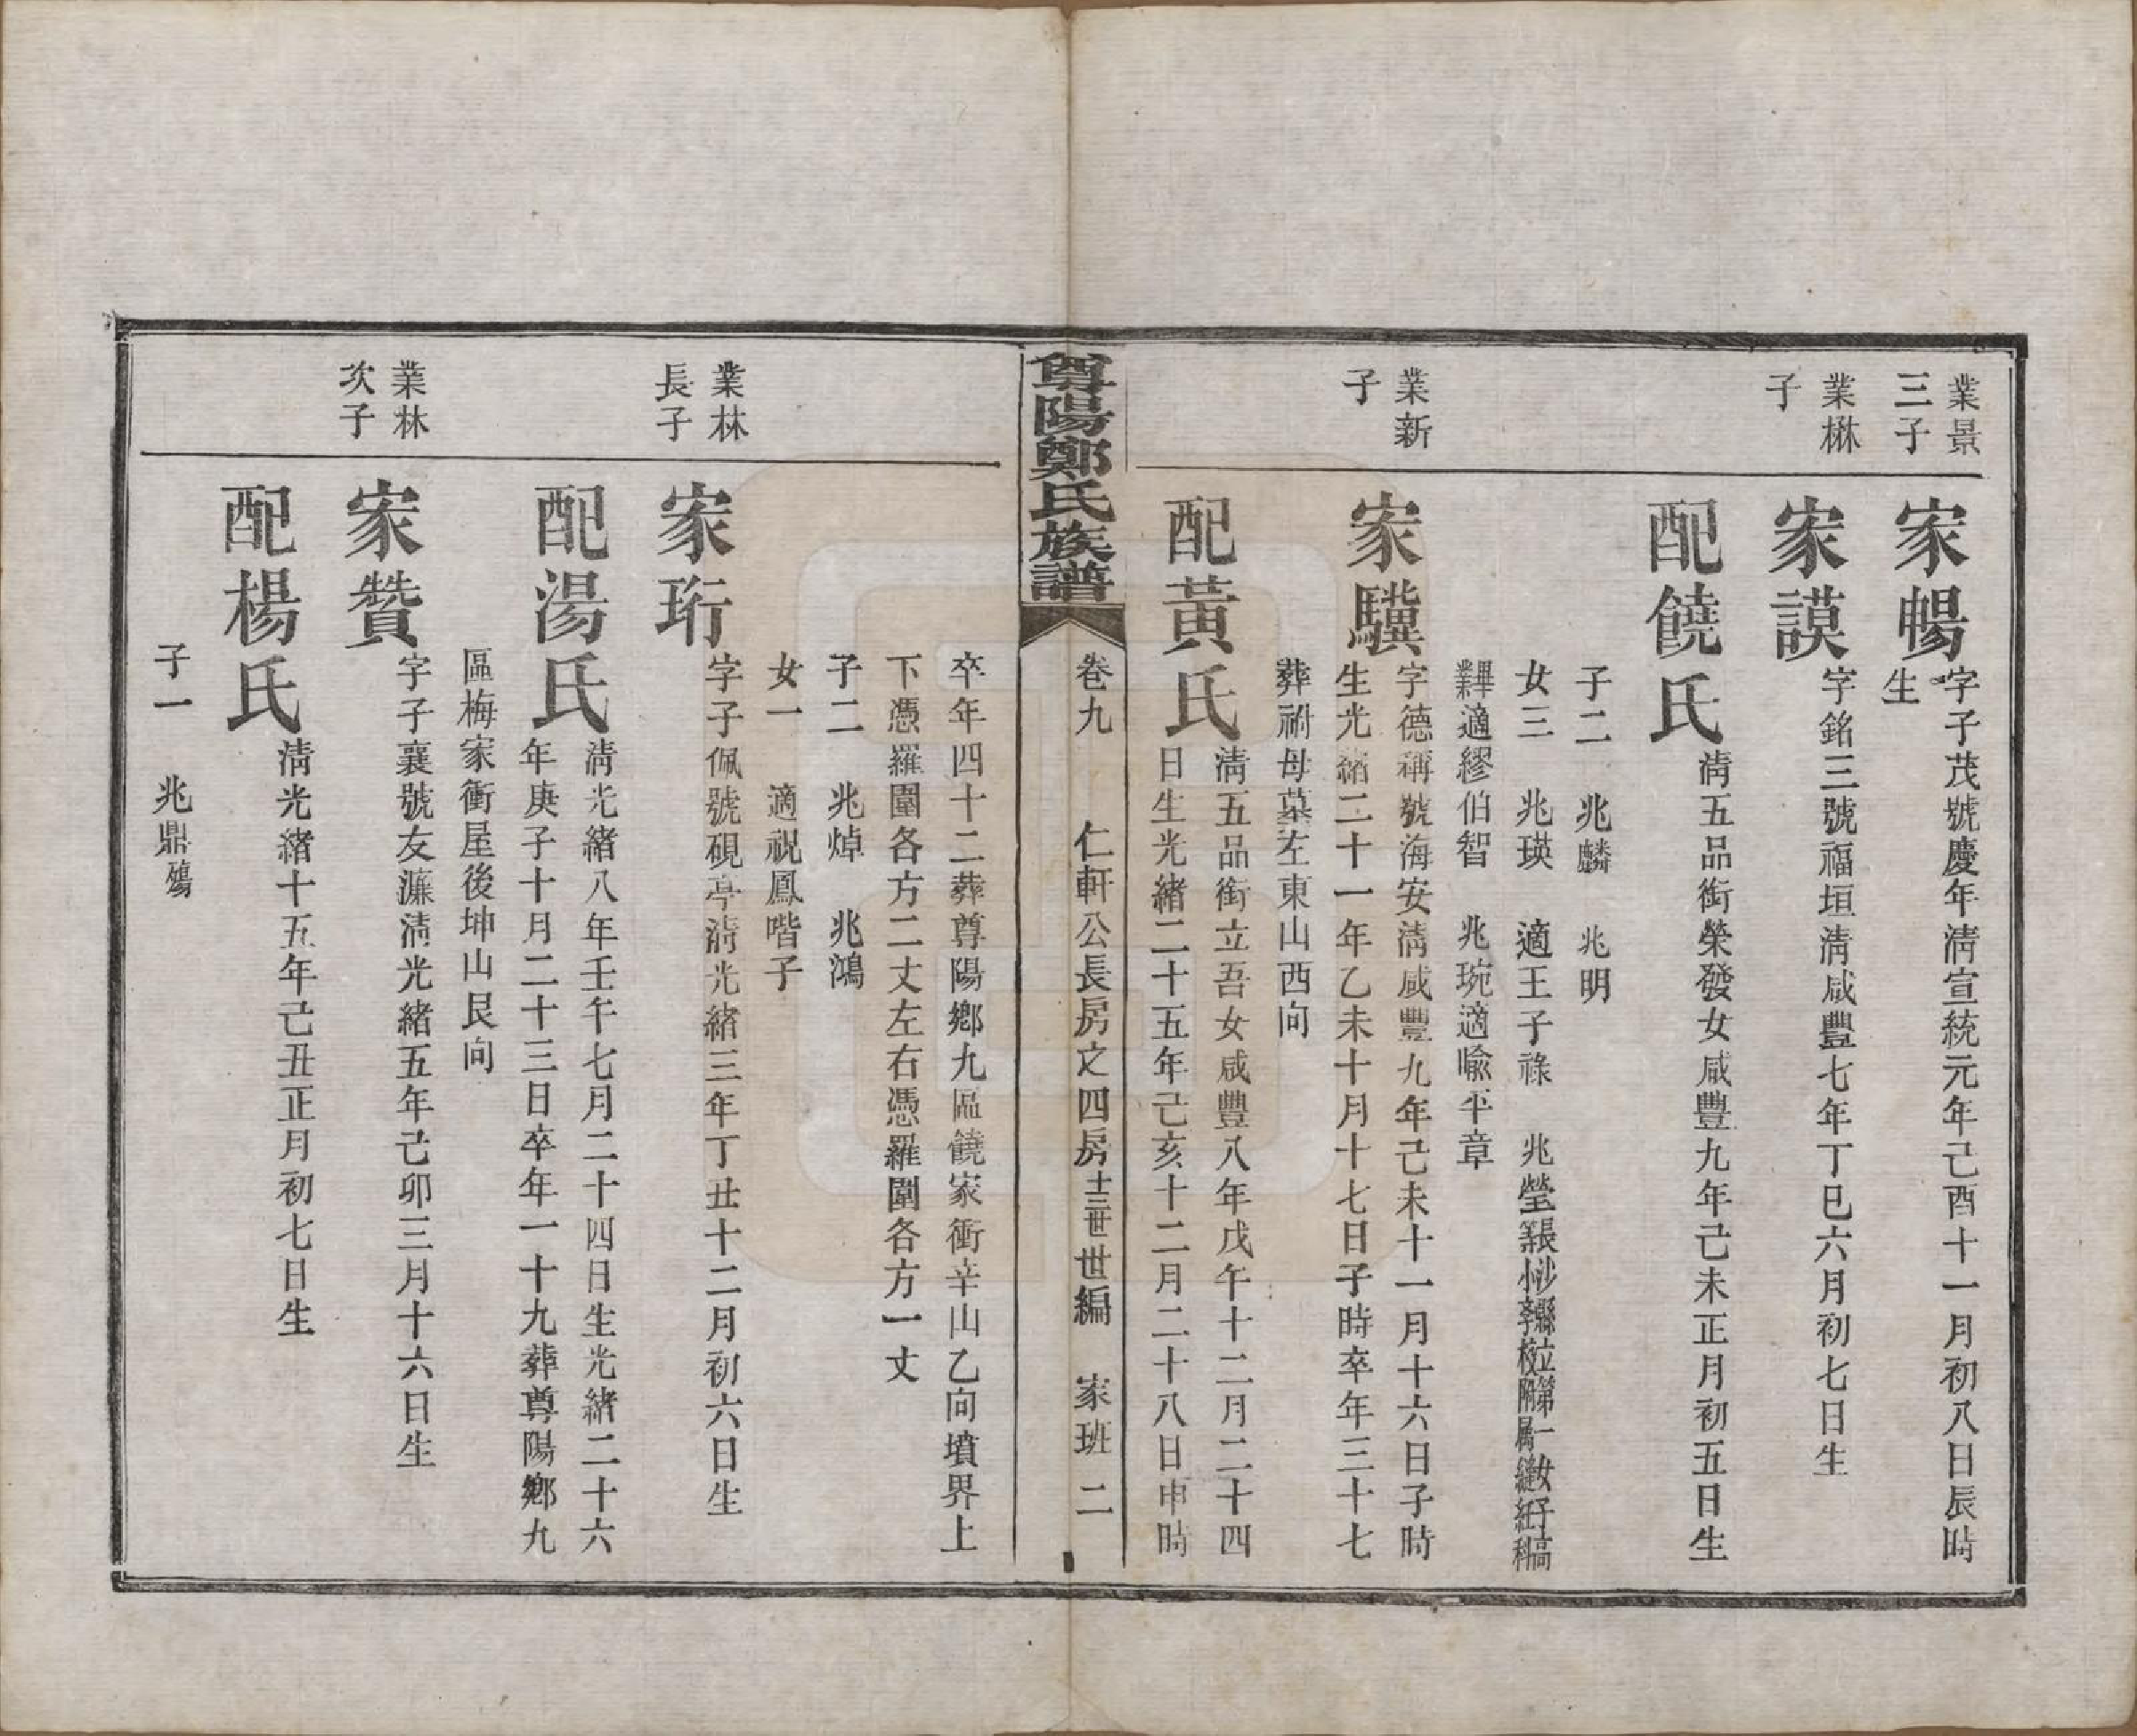 業景
三子
家暢
字子茂號慶年淸宣統元年己酉十一月初八日辰時
生
業楙
子
家謨
字銘三號福垣淸咸豐七年丁巳六月初七日生
配饒氏
淸五品銜榮發女咸豐九年己未正月初五日生
子二 兆麟 兆明
女三 兆瑛 適王子祿 兆瑩
業畢適繆伯智 兆琬適喩平章
業新
子
家驥
字德稱號海安淸咸豐九年己未十一月十六日子時
生光緒二十一年乙未十月十七日子時卒年三十七
葬祔母墓左東山西向
配黃氏
淸五品銜立吾女咸豐八年戊午十二月二十四
日生光緒二十五年己亥十二月二十八日申時
尊陽鄭氏族譜
卷九 仁軒公長房之四房十三世世編 家班 二
卒年四十二葬尊陽鄉九區饒家衝辛山乙向墳界上
下憑羅圍各方二丈左右憑羅圍各方一丈
子二 兆焯 兆鴻
女一 適祝鳳喈子
業林
長子
家珩
字子佩號硯亭淸光緒三年丁丑十二月初六日生
配湯氏
淸光緒八年壬午七月二十四日生光緒二十六
年庚子十月二十三日卒年一十九葬尊陽鄉九
區梅家衝屋後坤山艮向
業林
次子
家贊
字子襄號友濂淸光緒五年己卯三月十六日生
配楊氏
淸光緒十五年己丑正月初七日生
子一 兆鼎殤